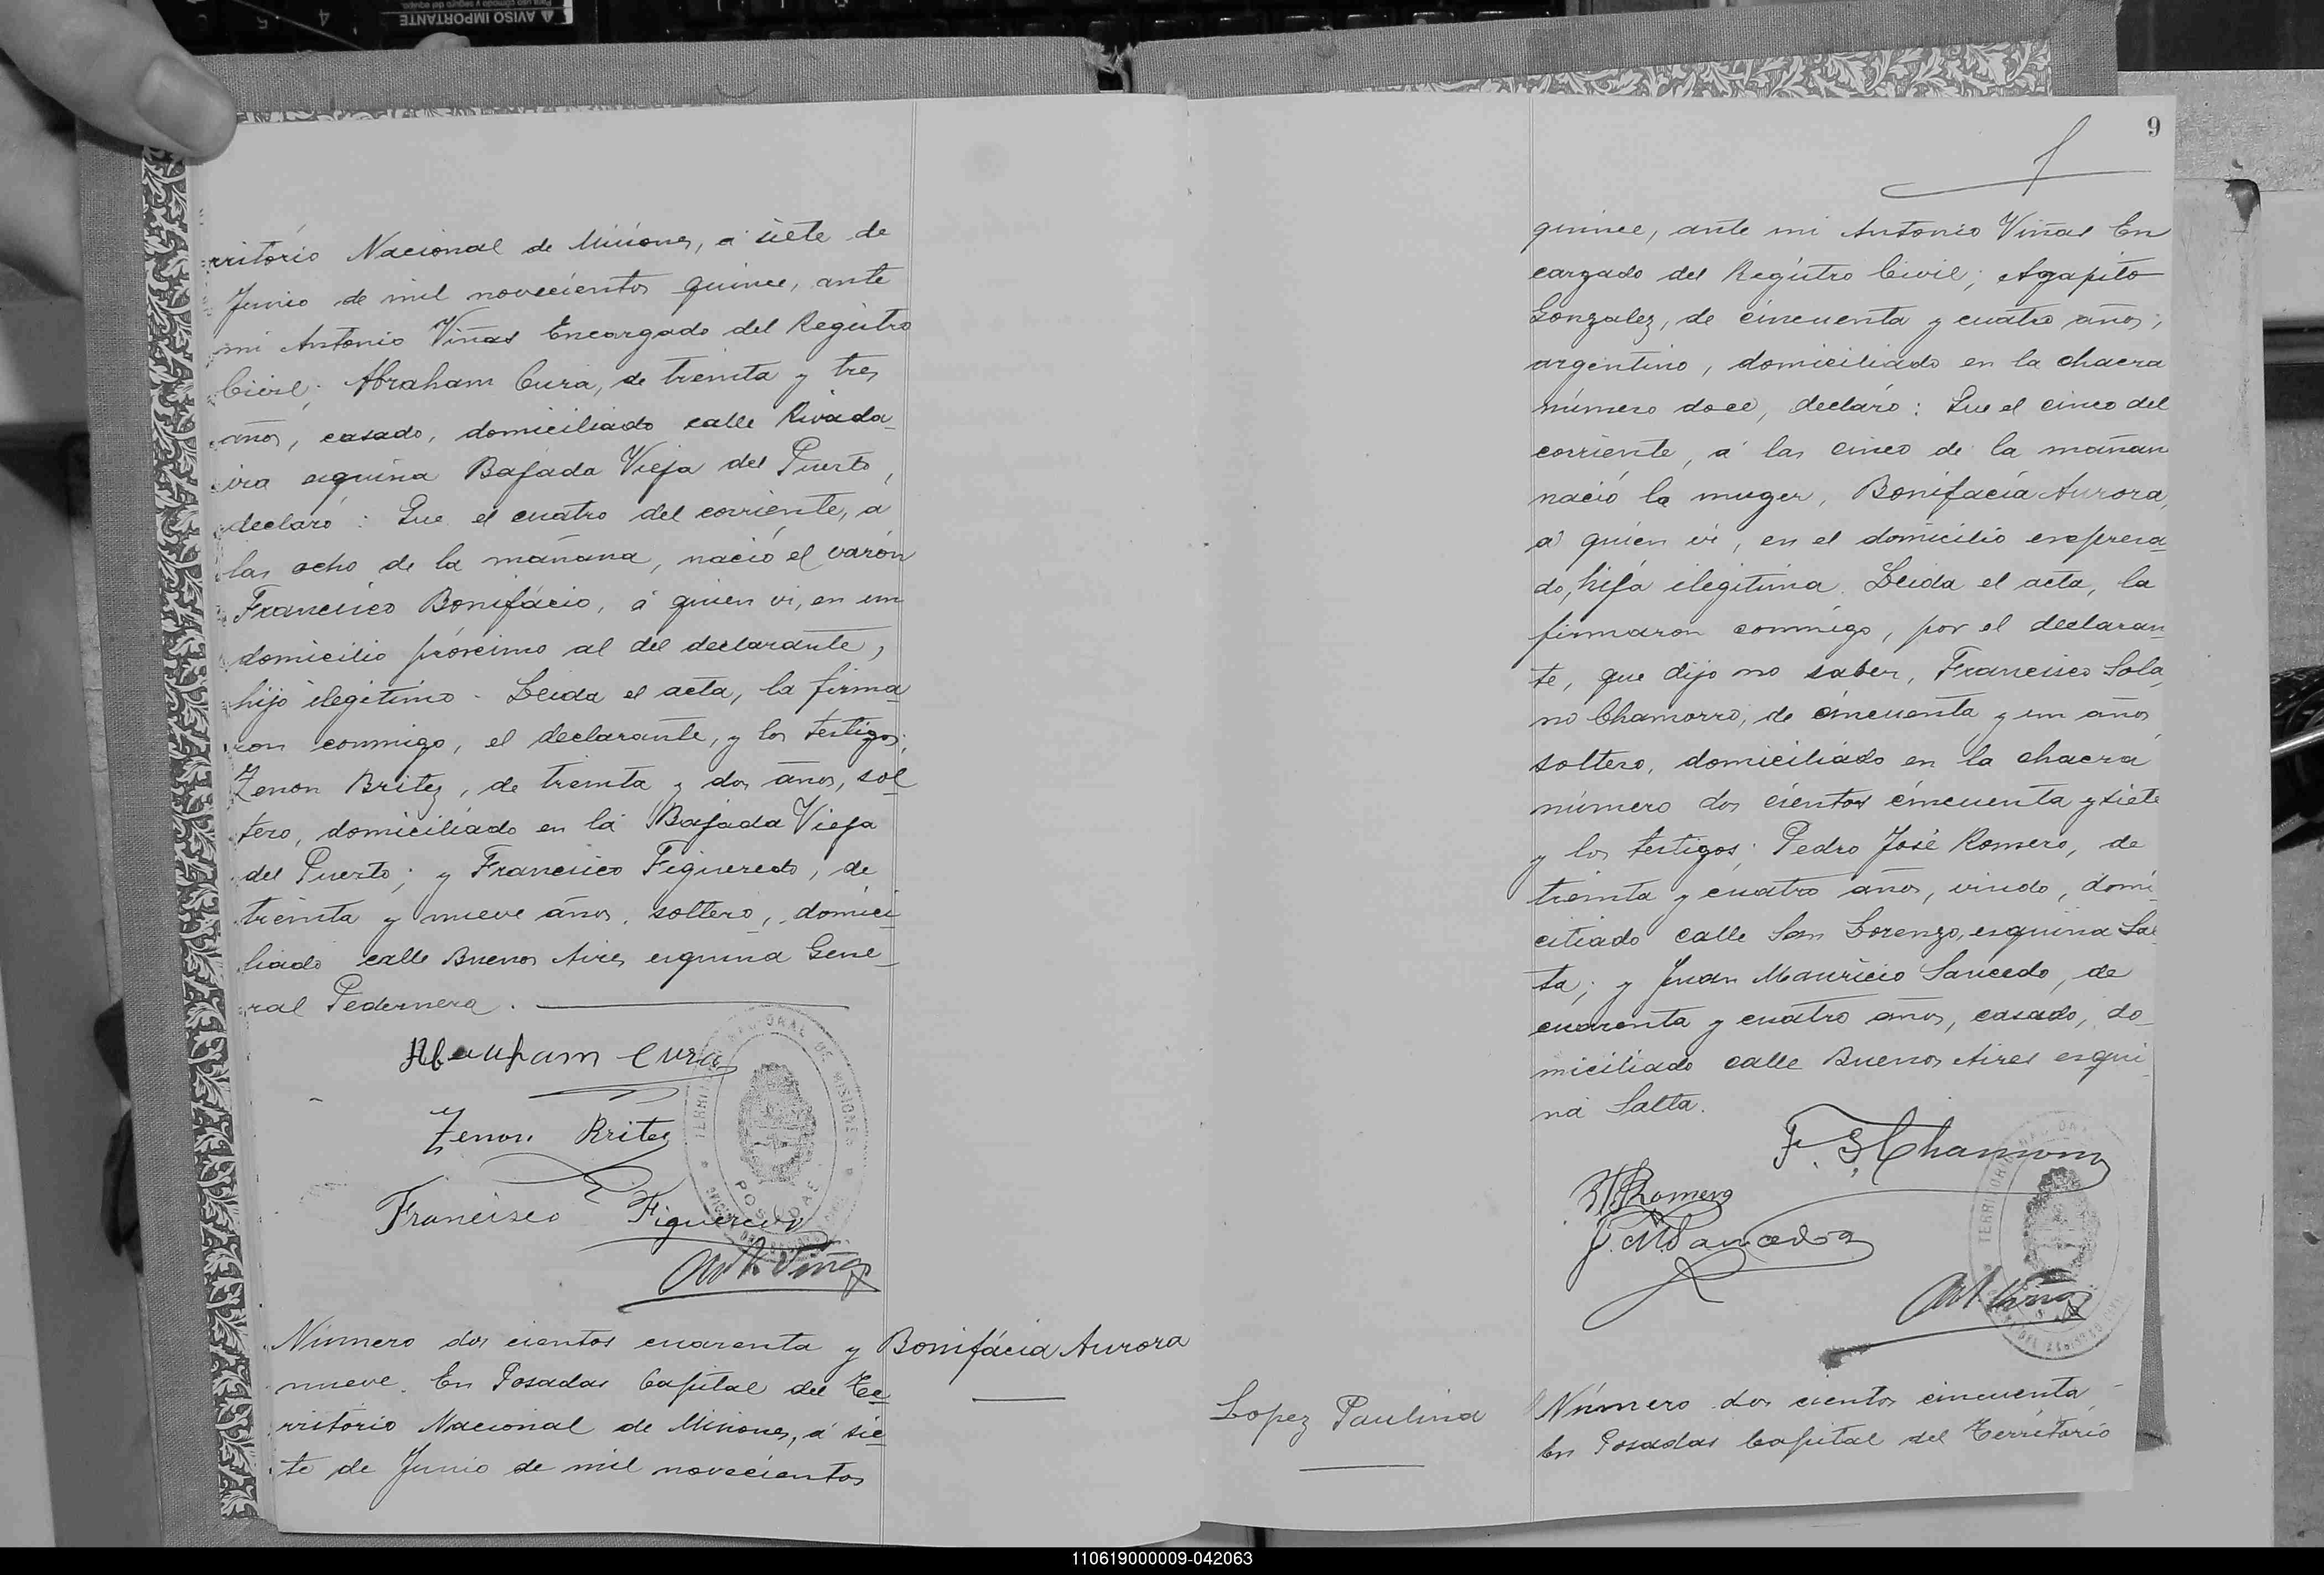 rritório Nacional de Misiones, á siete de
Junio de mil novecientos quince, ante
mi Antonio Viñas Encargado del Registro
Civil; Abraham Cura, de treinta y tres
años, casado, domiciliado calle Rivada-
via esquina Bajada Vieja del Puerto,
declaró: Que el cuatro del corriente, á
las ocho de la mañana, nació el varón
Francisco Bonifácio, á quien vi, en un
domicilio próximo al del declarante,
hijo ilegítimo. Leida el acta, la firma-
ron conmigo, el declarante, y los testigos;
Zenon Britez, de treinta y dos años, sol-
tero, domiciliado en la Bajada Vieja
del Puerto; y Francisco Figueredo, de
treinta y nueve años, soltero, domici-
liado calle Buenos Aires esquina Gene-
ral Pedernera.
Abraham Cura
Zenon Britez
Francisco Figueredo
Ant. Viñas
TERRITORIO NACIONAL DE MISIONES
POSADAS
Número dos cientos cuarenta y
nueve. En Posadas Capital del Te-
rritório Nacional de Misiones, á sie-
te de Junio de mil novecientos
Bonifácia Aurora
9
quince, ante mi Antonio Viñas En
cargado del Registro Civil; Agapito
Gonzalez, de cincuenta y cuatro años,
argentino, domiciliado en la chacra
número doce, declaró: Que el cinco del
corriente, á las cinco de la mañan
nació la muger, Bonifacia Aurora,
á quien vi, en el domicilio expresa-
do, hija ilegítima. Leida el acta, la
firmaron conmigo, por el declaran-
te, que dijo no saber, Francisco Sola-
no Chamorro, de cincuenta y un años
soltero, domiciliado en la chacra
número dos cientos cincuenta y siete
y los testigos; Pedro José Romero, de
treinta y cuatro años, viudo, domi-
ciliado calle San Lorenzo, esquina Sal
ta; y Juan Mauricio Saucedo, de
cuarenta y cuatro años, casado, do-
miciliado calle Buenos Aires esqui-
na Salta.
F. S. Chamorro
Romero
J. M. Saucedo
Ant. Viñas
Lopez Paulina
Número dos cientos cincuenta
En Posadas Capital del Território
110619000009-042063